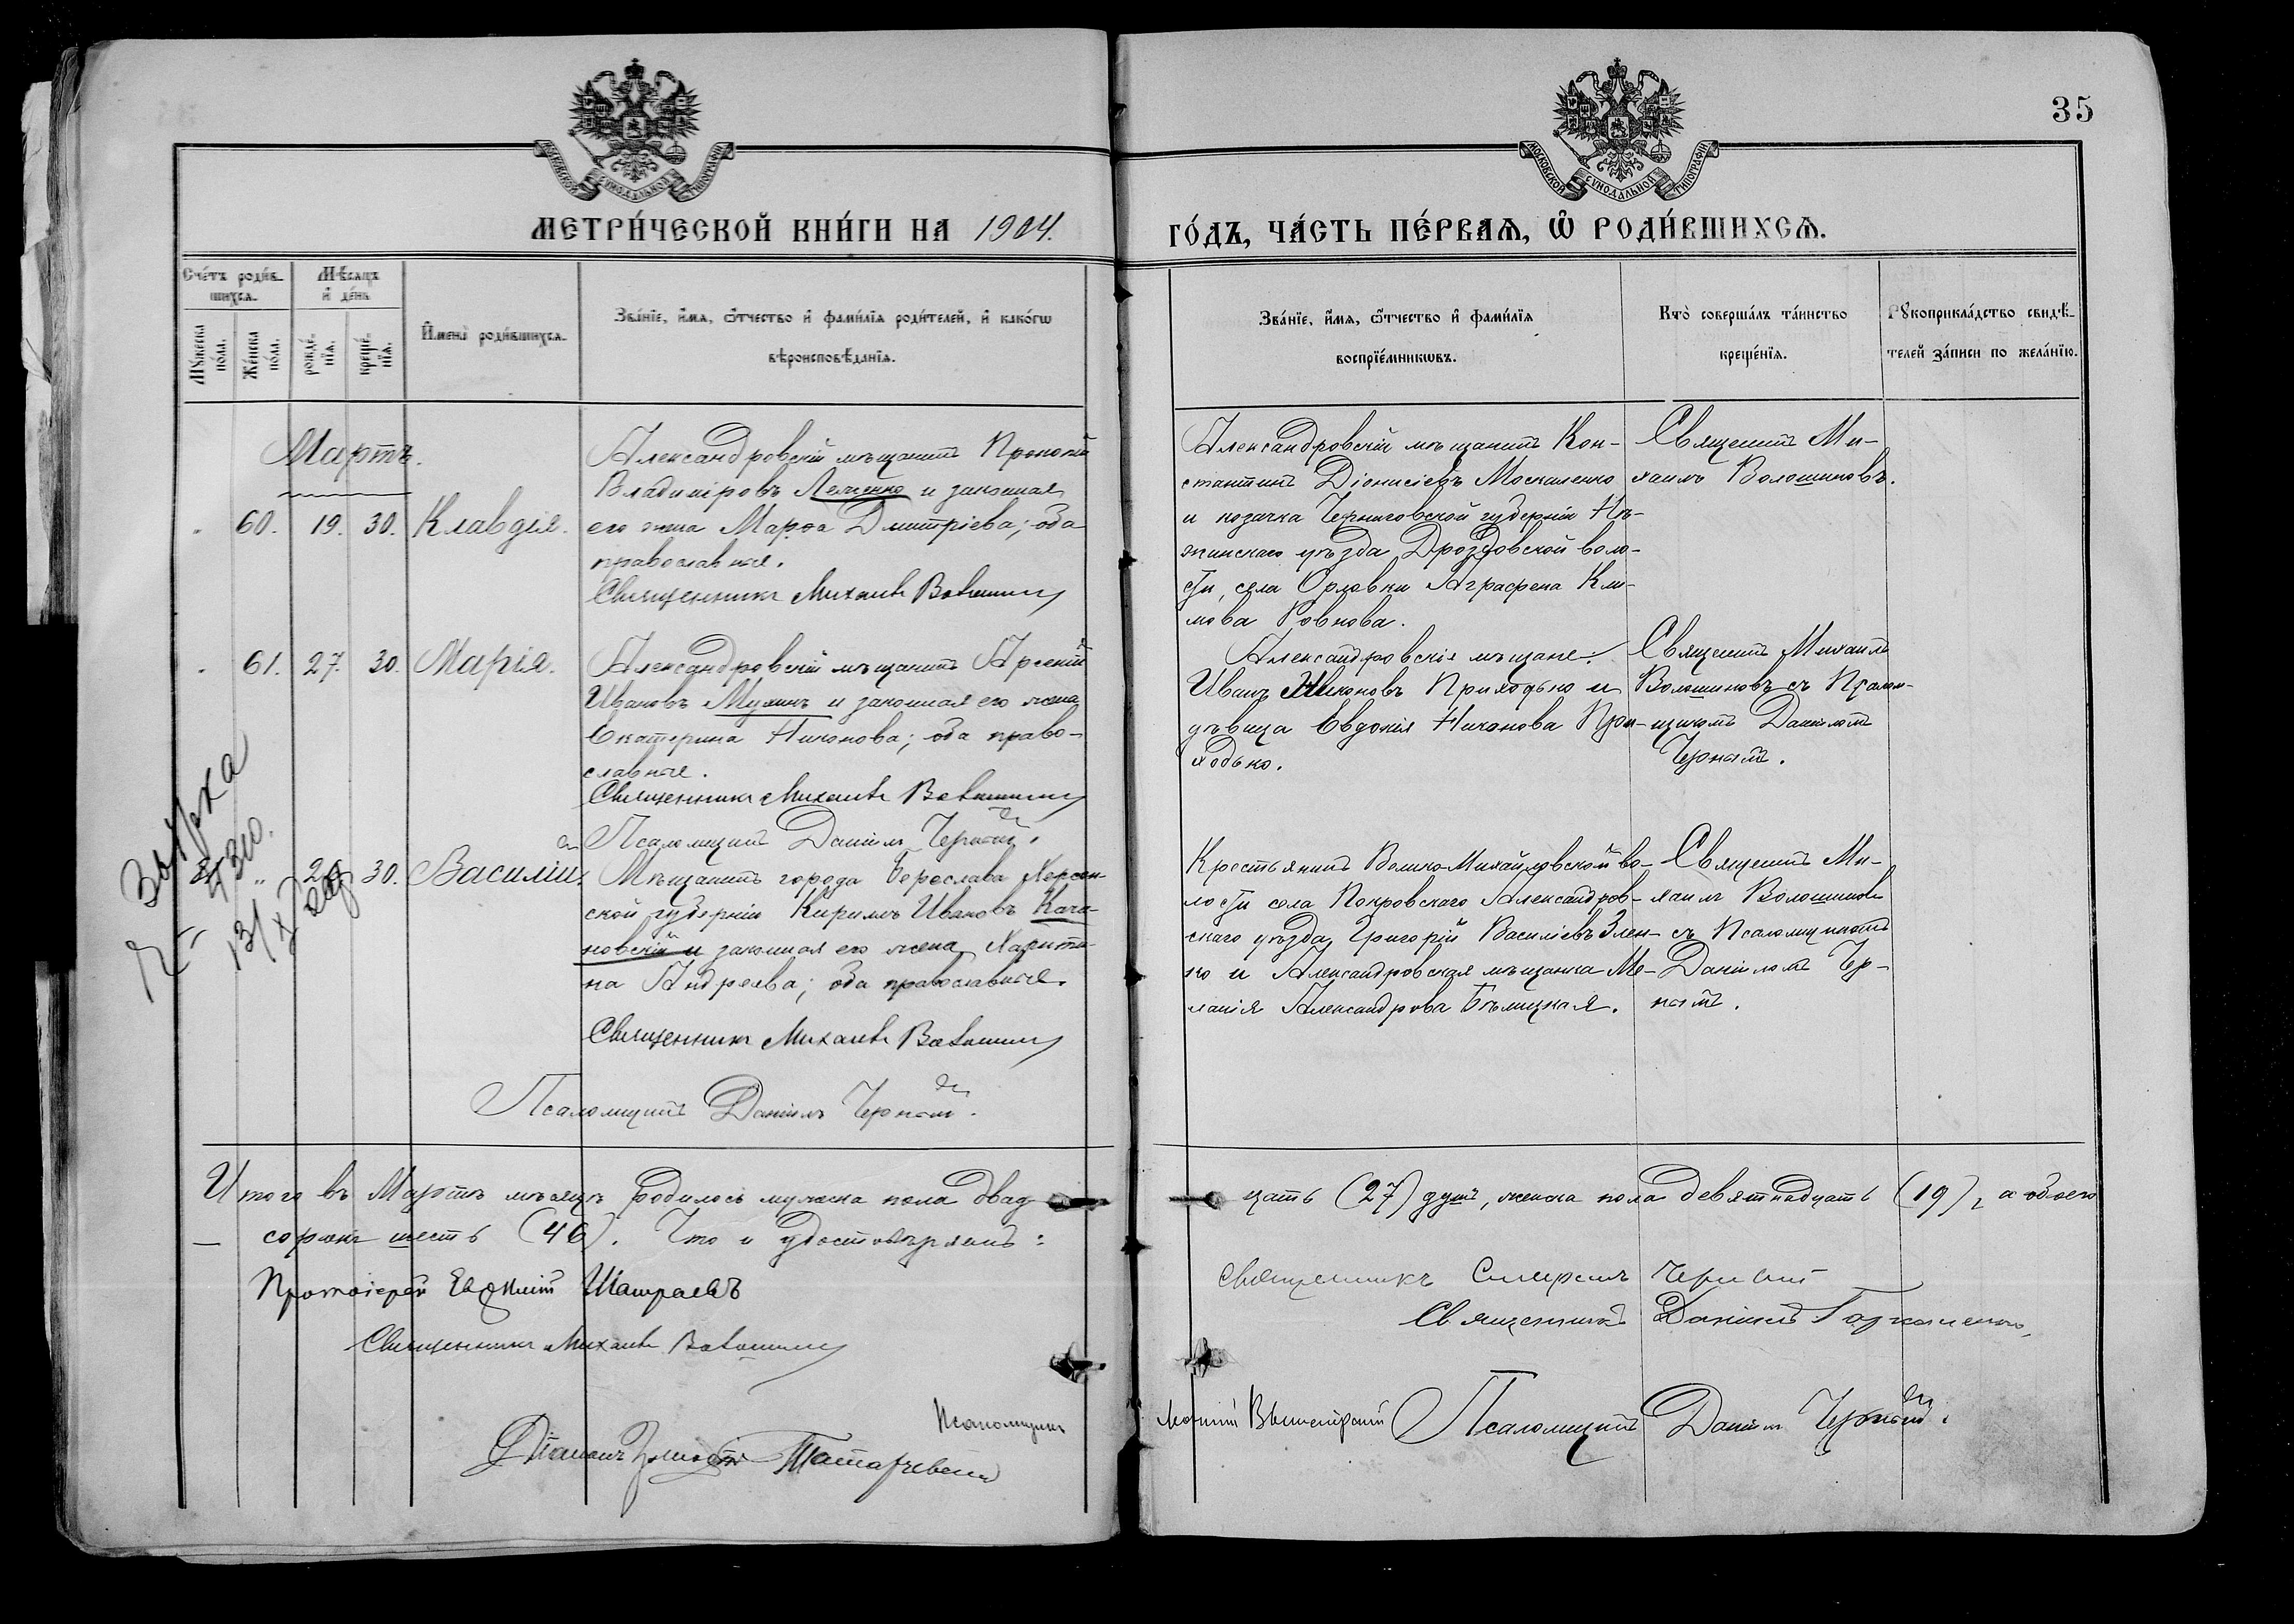 35
МОСКОВСКОЙ СѴНОДАЛЬНОЙ ТИПОГРАФІИ
МОСКОВСКОЙ СѴНОДАЛЬНОЙ ТИПОГРАФІИ
МЕТРИ́ЧЕСКОЙ КНИ́ГИ НА 1904.
ГО́ДЪ, ЧА́СТЬ ПЕ́РВАѦ, Ѽ РОДИ́ВШИХСѦ.
Сче́тъ роди́в-
шихсѧ.
Мѣ́сѧцъ
и҆ де́нь
Мꙋ́жеска по́ла.
Же́нска по́ла.
рожде́нїѧ.
креще́нїѧ.
И҆мена̀ роди́вшихсѧ.
Зва́нїе, и҆́мѧ, ѻ҆́тчество и҆ фами́лїѧ роди́телей, и҆ како́гѡ
вѣроисповѣ́данїѧ.
Зва́нїе, и҆́мѧ, ѻ҆́тчество и҆ фами́лїѧ
воспрїе́мникѡвъ.
Кто̀ соверша́лъ та́инство
креще́нїѧ.
Рꙋкоприкла́дство свидѣ́-
телей за́писи по жела́нїю.
Мартъ.
60. 19. 30. Клавдія.
Александровскій мѣщанинъ Прокопій
Владиміровъ и законная
его жена Марѳа Дмитріева; оба
православные.
Священникъ Михаилъ Волошинов
Александровскій мѣщанинъ Кон-
стантинъ Діонисіевъ Москаленко
и козачка Черниговской губерніи Нѣ-
жинскаго уѣзда, Дроздовской воло-
сти, села Орловки Аграфена Кли-
мова Ровнова.
Священникъ Ми-
хаилъ Волошиновъ.
61. 27. 30. Марія.
Александровскій мѣщанинъ Арсеній
Ивановъ Мухинъ и законная его жена
Екатерина Никонова; оба право-
славные.
Священникъ Михаилъ Волошинов
Псаломщикъ Даніилъ Черный.
Александровскіе мѣщане:
Иванъ Никоновъ Приходько и
дѣвица Евдокія Никонова При-
ходько.
Священникъ Михаилъ
Волошиновъ съ Псалом-
щикомъ Даніиломъ
Чернымъ.
30. Василій.
Мѣщанинъ города Берислава Херсон-
ской губерніи Кириллъ Ивановъ Кача-
новскій и законная его жена Харити-
на Андреева; оба православные.
Священникъ Михаилъ Волошинов
Псаломщикъ Даніилъ Черный.
Крестьянинъ Велико-Михайловской во-
лости села Покровскаго Александров-
скаго уѣзда Григорій Василіевъ Злен-
ко и Александровская мѣщанка Ме-
ланія Александрова Бѣлицкая.
Священникъ Ми-
хаилъ Волошиновъ
съ Псаломщикомъ
Даніиломъ Чер-
нымъ.
Итого въ Мартѣ мѣсяцѣ родилось мужеска пола двад-
цать (27) душъ, женска пола девятнадцать (19), а обоего
— сорокъ шесть (46). Что и удостовѣряемъ:
Протоіерей Евѳимій Шатраевъ
Священникъ Михаилъ Волошинов
Священникъ Черный
Священникъ Даніилъ
Псаломщикъ
Діаконъ
Псаломщикъ Даніилъ Черный.